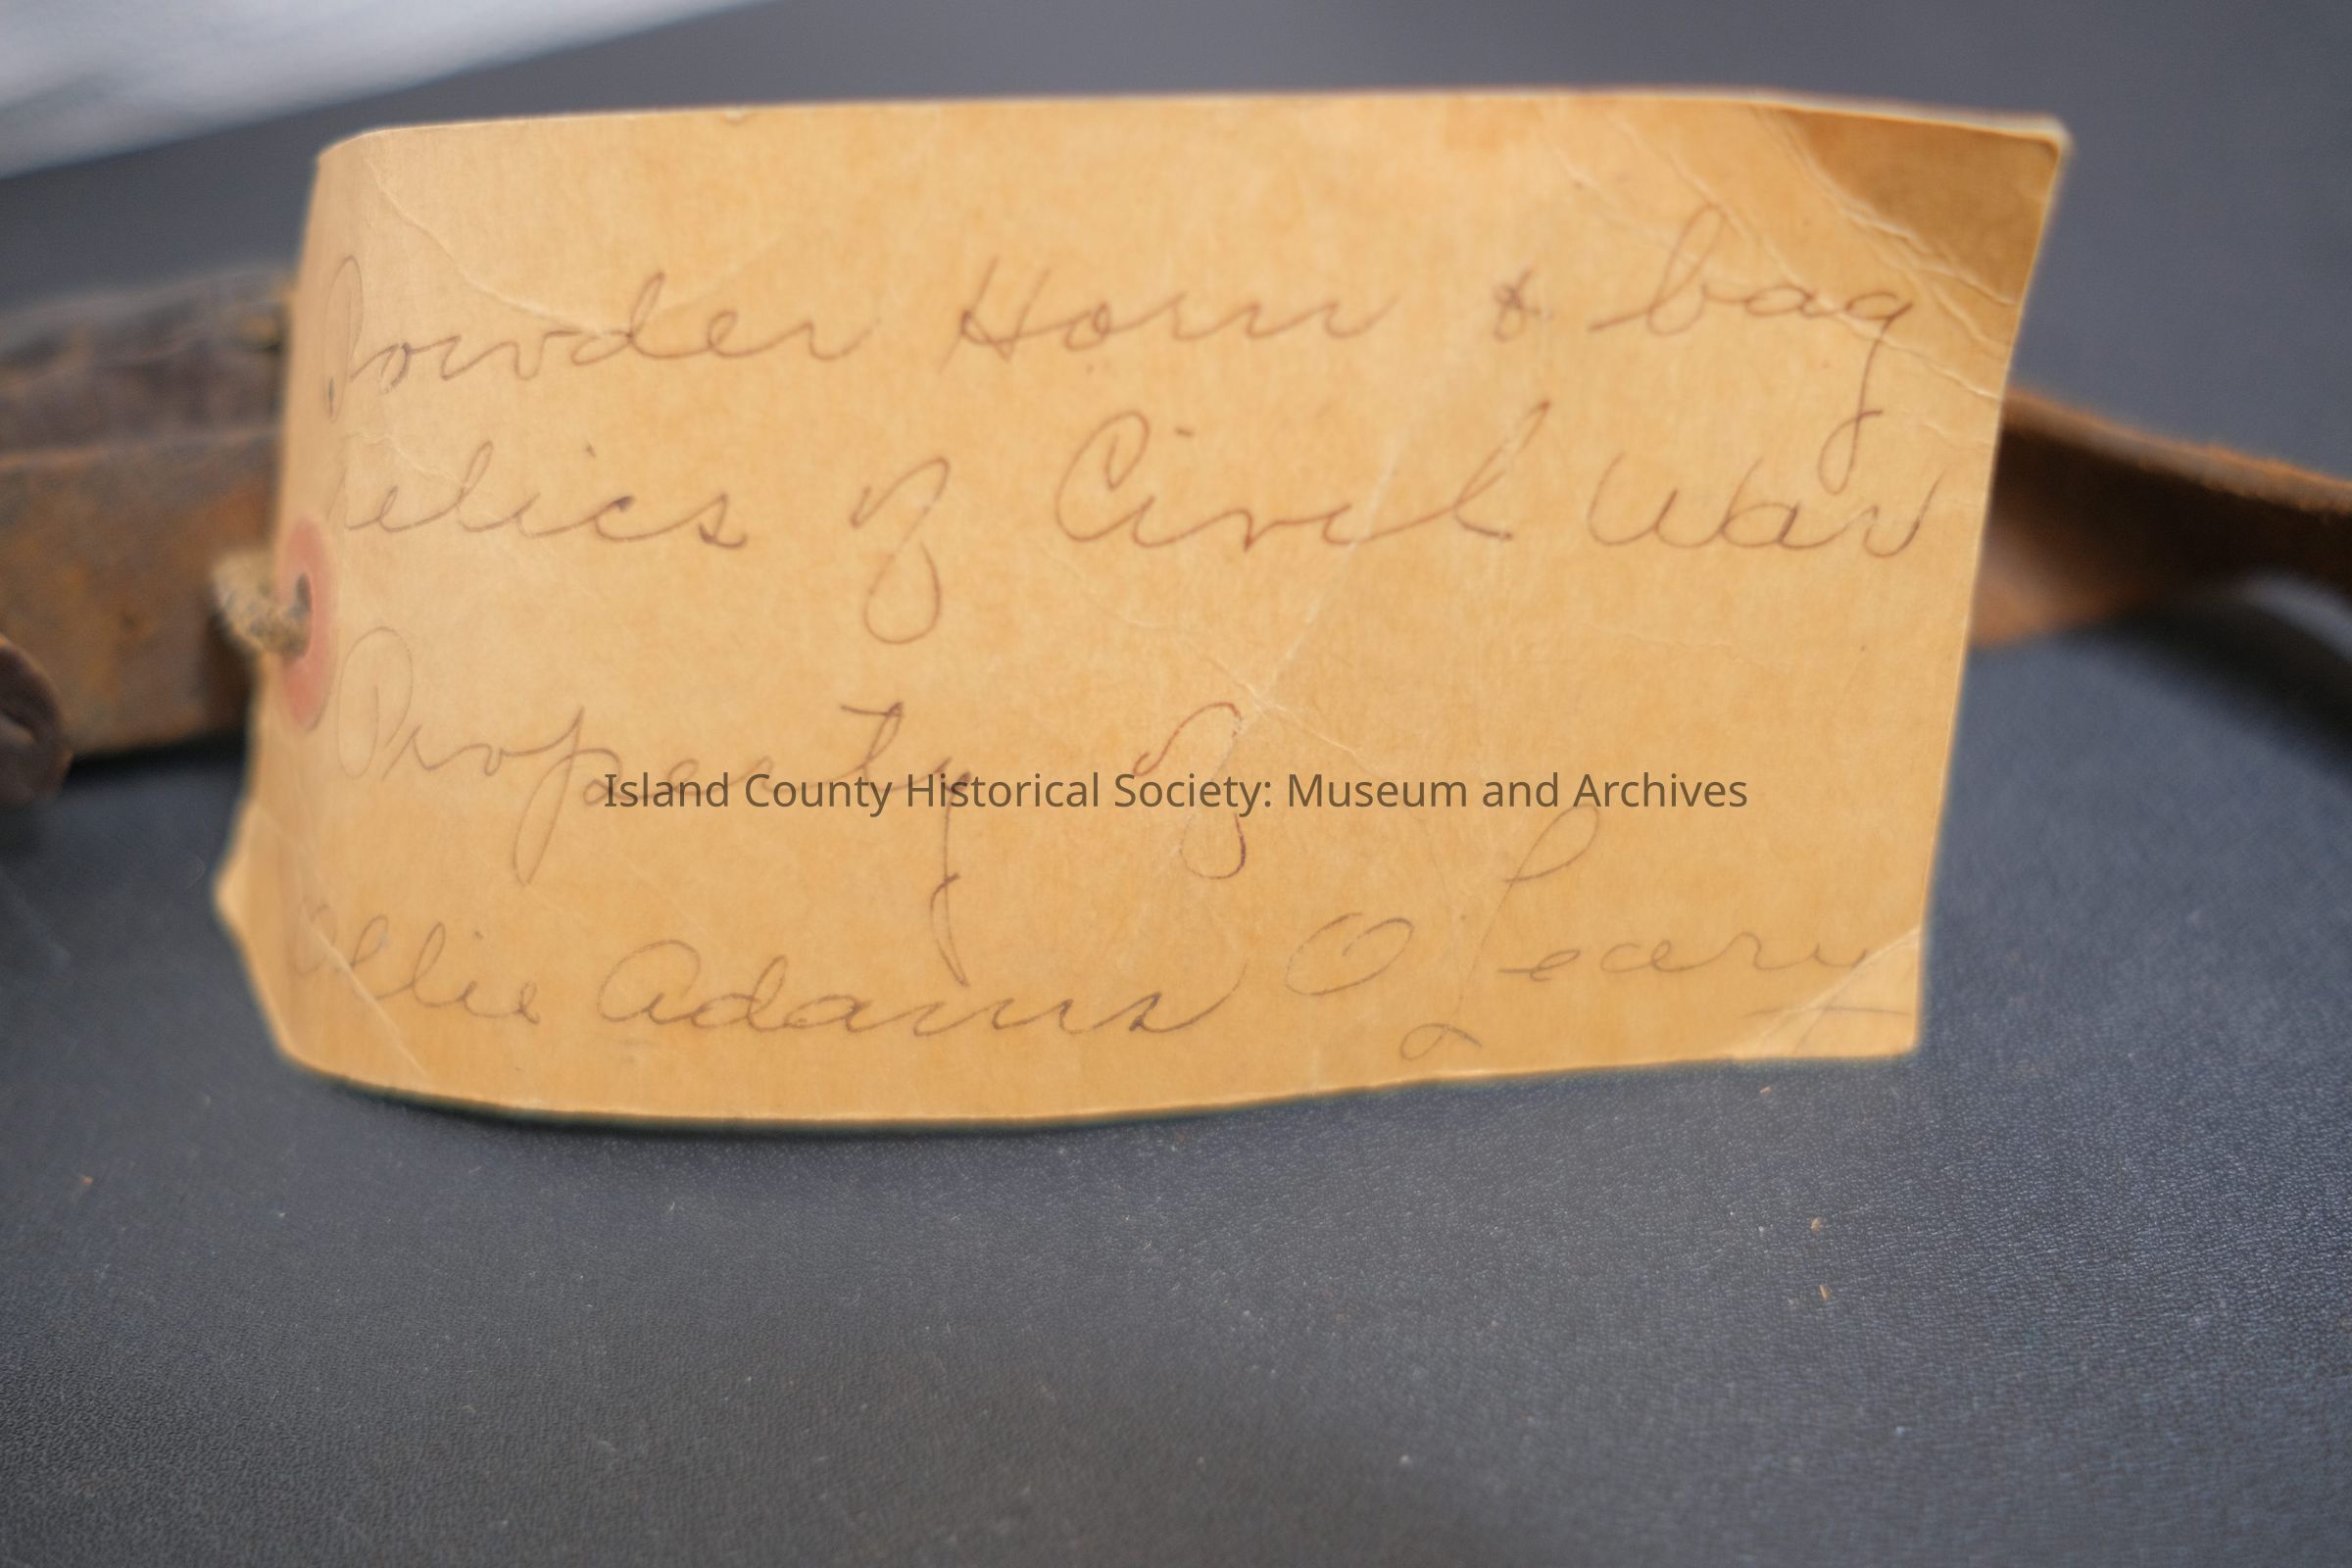 Powder Horn & bag
relics of Civil War
Property of
Island County Historical Society: Museum and Archives
Ollie Adams O'Leary